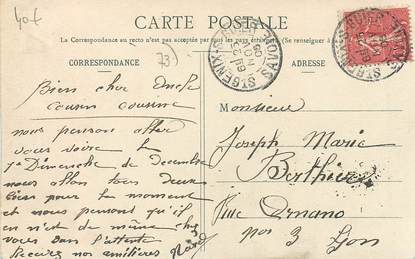 40f
CARTE POSTALE
La Correspondance au recto n'est pas acceptée par tous les pays étrangers (Se renseigner à
CORRESPONDANCE
73)
ADRESSE
ST GENIX-S-GUIERS SAVOIE
ST GENIX-S-GUIERS
Bien cher oncle
cousin cousine
nous pensons aller
vous voire le
1er Dimanche de decembre
nous allon tous deux
bien pour le moment
et nous pensons qu'il
en n'est de même chez
vous Dans l'attente
Recevez nos amitiées
Monsieur
Joseph Marie
Berthier
Rue Ornano
no 3 Lyon